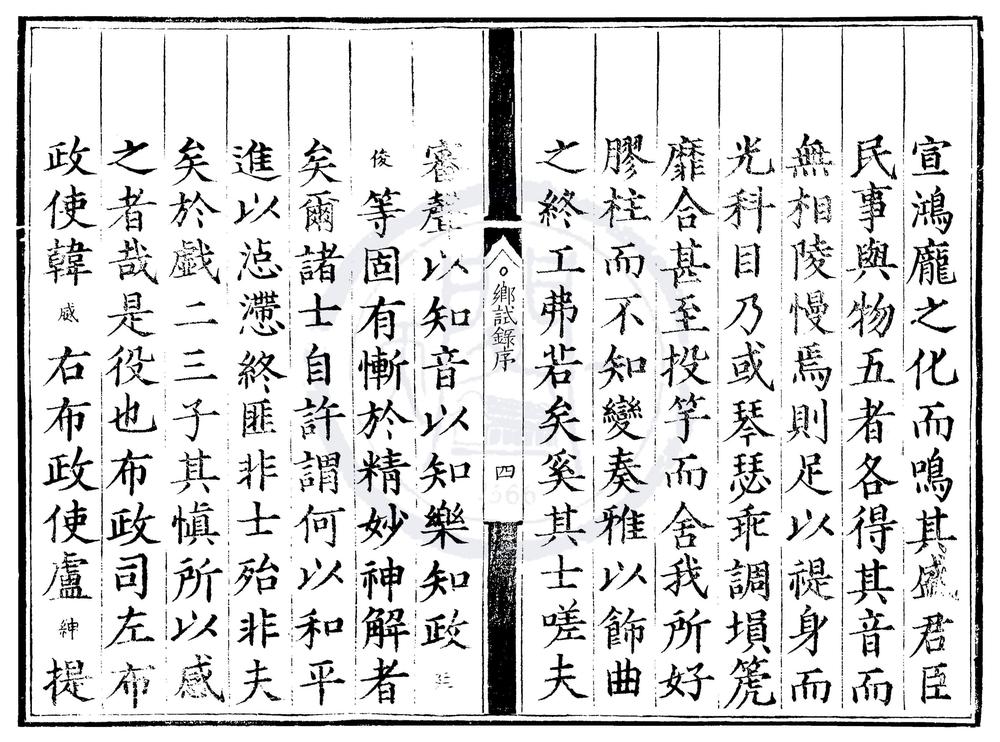 宣鴻龐之化而鳴其盛君臣
民事與物五者各得其音而
無相陵慢焉則足以禔身而
光科目乃或琴瑟乖調塤箎
靡合甚至投竽而舍我所好
膠柱而不知變奏雅以飾曲
之終工弗若矣奚其士嗟夫
鄉試錄序
四
審聲以知音以知樂知政廷
俊等固有慚於精妙神解者
矣爾諸士自許謂何以和平
進以惉懘終匪非士殆非夫
矣於戲二三子其慎所以感
之者哉是役也布政司左布
政使韓威右布政使盧紳提